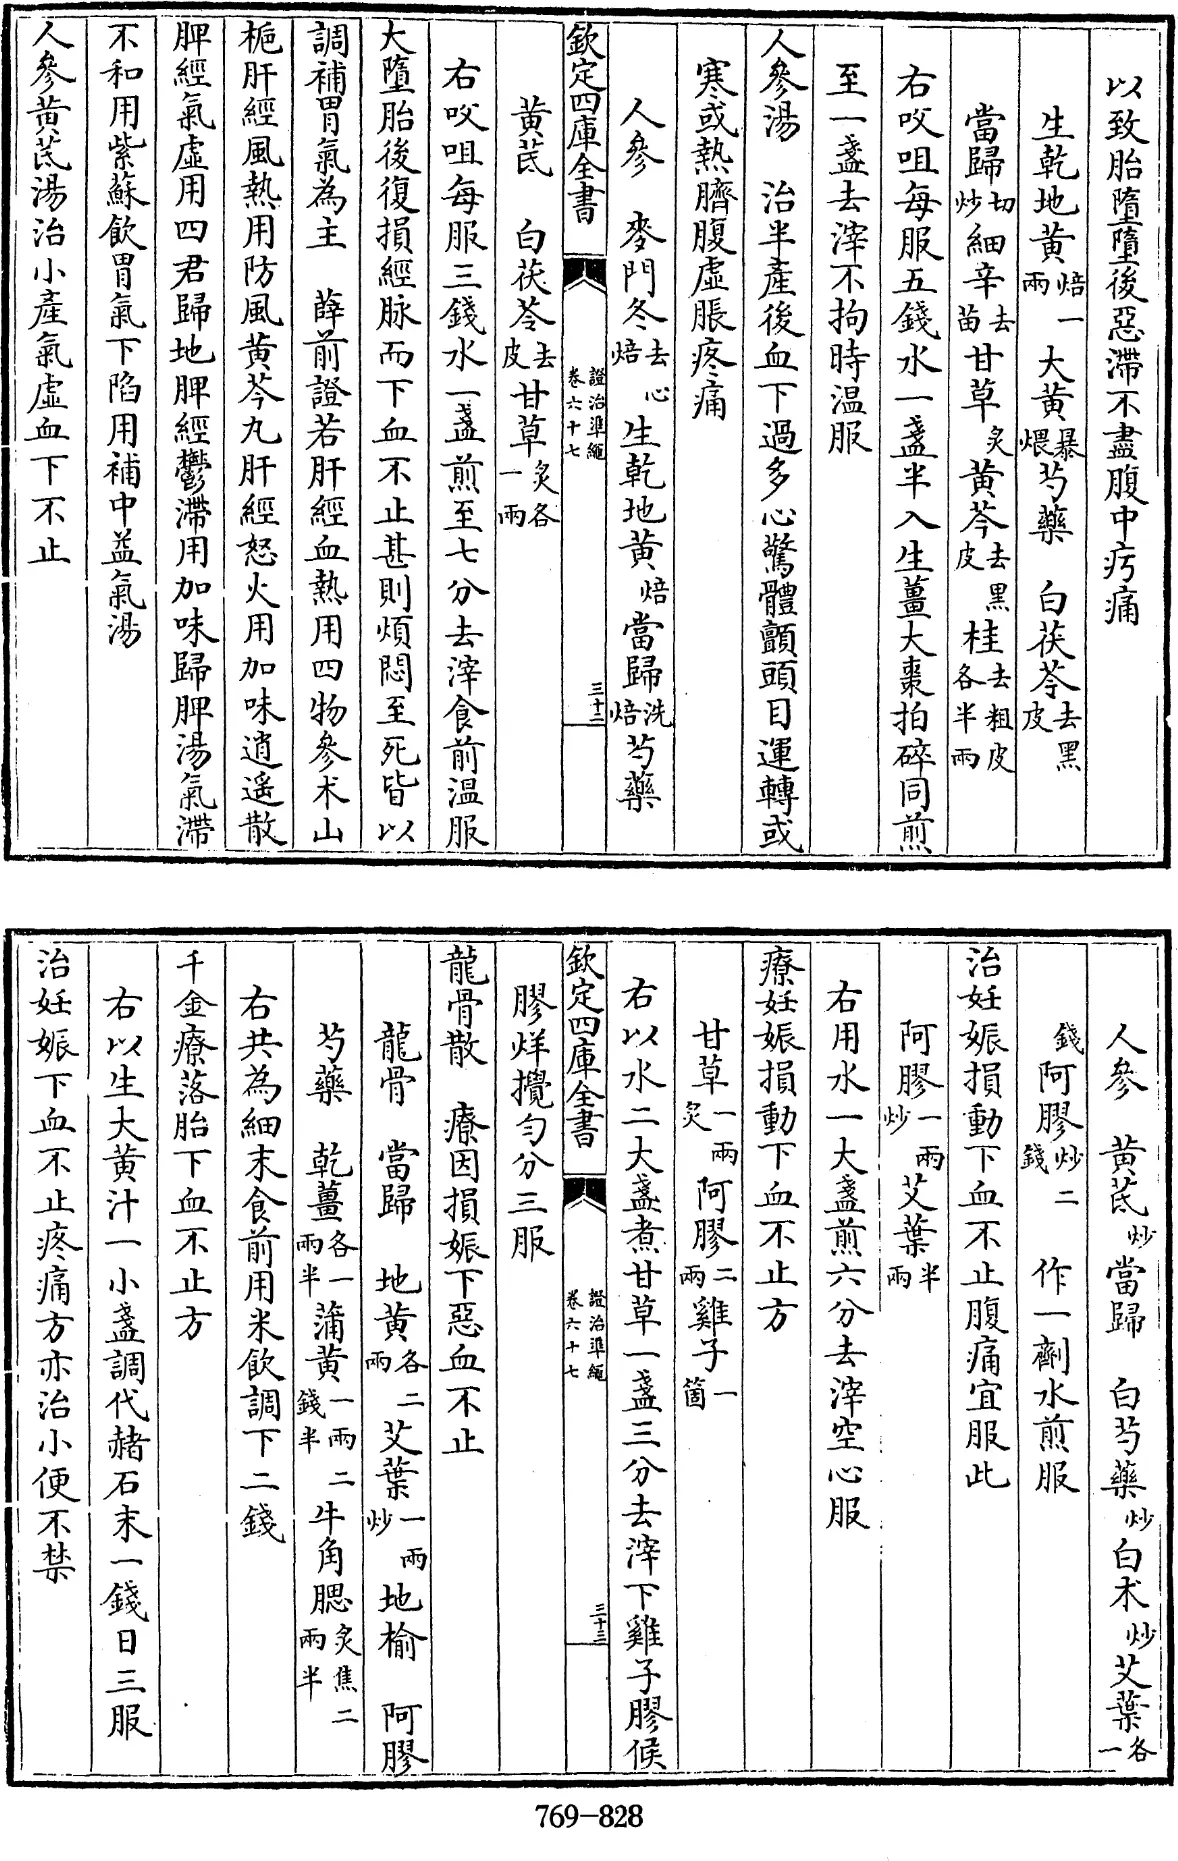 以致胎墮墮後惡滯不盡腹中疞痛
生乾地黃焙一兩 大黃暴煨芍藥 白茯苓去黑皮
當歸切炒細辛去苗甘草炙黃芩去黑皮桂去粗皮各半兩
右㕮咀每服五錢水一盞半入生薑大棗拍碎同煎
至一盞去滓不拘時温服
人參湯 治半產後血下過多心驚體顫頭目運轉或
寒或熱臍腹虛脹疼痛
人參 麥門冬去心焙生乾地黃焙當歸洗焙芍藥
欽定四庫全書 證治準繩 卷六十七 三十二
黃茋 白茯苓去皮甘草炙各一兩
右㕮咀每服三錢水一盞煎至七分去滓食前温服
大墮胎後復損經脉而下血不止甚則煩悶至死皆以
調補胃氣為主 薛前證若肝經血熱用四物參术山
梔肝經風熱用防風黃芩丸肝經怒火用加味逍遥散
脾經氣虛用四君歸地脾經鬱滯用加味歸脾湯氣滯
不和用紫蘇飲胃氣下陷用補中益氣湯
人參黃茋湯治小產氣虛血下不止
人參 黃茋炒當歸 白芍藥炒白术炒艾葉各一
錢阿膠炒二錢 作一劑水煎服
治妊娠損動下血不止腹痛宜服此
阿膠一兩炒艾葉半兩
右用水一大盞煎六分去滓空心服
療妊娠損動下血不止方
甘草一兩炙阿膠二兩雞子一箇
右以水二大盞煮甘草一盞三分去滓下雞子膠候
欽定四庫全書 證治準繩 卷六十七 三十三
膠烊攪勻分三服
龍骨散 療因損娠下惡血不止
龍骨 當歸 地黃各二兩艾葉一兩炒地榆 阿膠
芍藥 乾薑各一兩半蒲黃一兩二錢半牛角䚡炙焦二兩半
右共為細末食前用米飲調下二錢
千金療落胎下血不止方
右以生大黃汁一小盞調代赭石末一錢日三服
治妊娠下血不止疼痛方亦治小便不禁
769-828